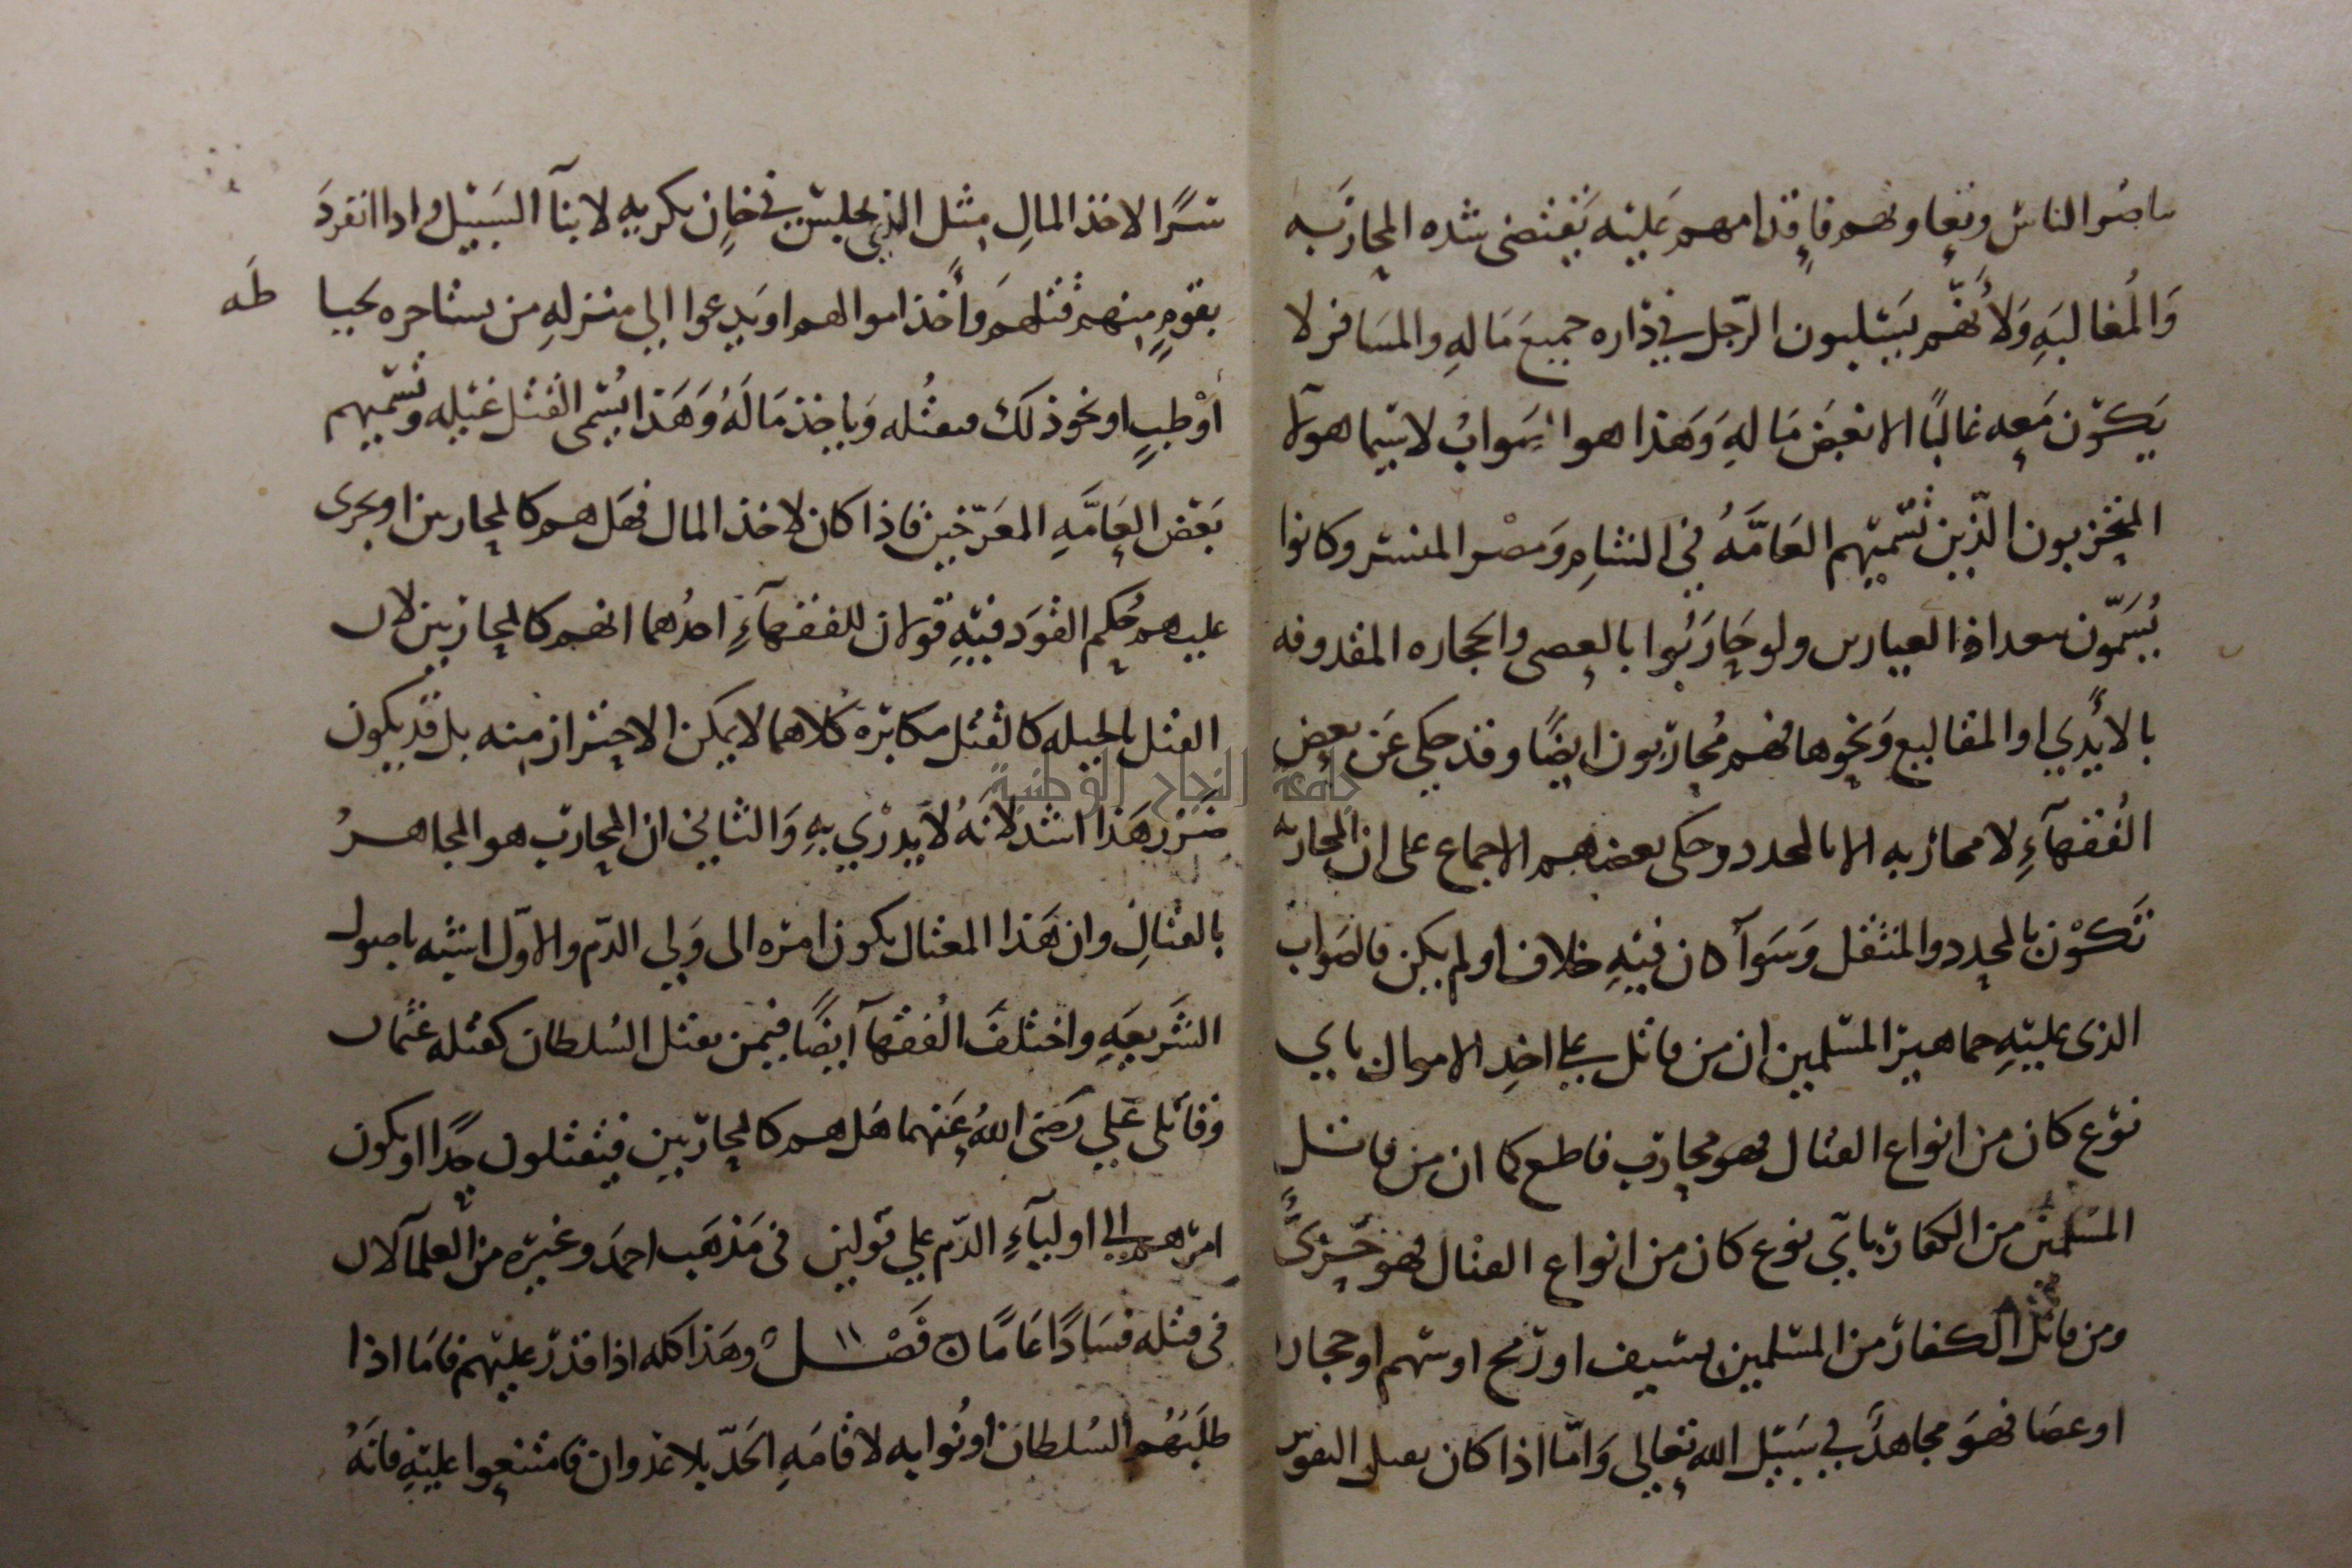 ساصُر الناس وتعاونهم فاقدامهم عليه يقتضى شده المحاربه
وَالمُغالبَهِ وَلأنّهم يَسلبون الرّجل في داره جميعَ مَالهِ والمسَافر لا
يَكوّن مَعه غالبًا الا بعض مَالهِ وَهَذا هوا لصَوابُ لاسيما هولآ
المتحزبون الذّين تُسّميهم العَامَّهُ في الشامِ وَمصْر المنسر وكانوا
يُسَمّون ببعداذ العيارين ولو حَارَبُوا بالعصى والحجاره المقدوفه
بالأيْدي او المقاليع وَنحوها فهم مُحاربون ايضًا وقد حكي عَن بعض
الفُقهآءِ لا محاربه الا بالمحدد وحكى بعضهم الاجماع على ان المحاربه
تَكوْن بالمحدد والمثقل وَسَوآ كان فيهِ خلاف او لم يكن فالصَواب
الذى عليهِ جماهير المسلمين ان من قاتل على اخذِ الاموال باي
نوْع كان من انواع القتال فهو محارب قاطع كما ان من قاتل
المسلمين من الكفار بايّ نوع كان من انواع القتال فهو حَربىٌّ
ومن قاتل الكفار من المسلمين بسيف او رمح او سهم او حجاره
او عصَا فهوَ مجاهدٌ في سَبيل الله تعالى وَامّا اذا كان يقتل النفوس
سرًا لاخذ المالِ مثل الذي يجلس في خانٍ يكريهِ لابنآ السَبيل واذا انفردَ
بقومٍ منهم قتلهم وَأخذ اموالهم او يَدعوا الي منزلهِ من يستاجره لخيا
طَه
أوْ طبٍ او نحو ذلك فيقتُله وَياخذ مَالَهُ وَهَذا يُسّمى القتل غيله وتُسّميهم
بَعْض العَامَّهِ المعَرّجين فاذا كان لاخذ المال فهَل هم كالمحاربين او يجرى
عليهم حُكم القوَد فيهِ قولان للفقهآءِ احدُهما انهم كالمحاربين لان
القتل بالحيله كالقتل مكابره كلاهما لا يمكن الاحتراز منه بل قد يكون
ضَرر هَذا اشد لانَهُ لا يَدْري بهِ وَالثاني ان المحارب هو المجاهرُ
بالقتالِ وان هَذا المغتال يكون امره الى وَلي الدّم والاوّل اشبه باصول
الشَريعَهِ واختلفَ الفُقهآ ايضًا فيمن يقتل السُلطان كقتله عثمان
وَقاتلى عَلي رَضىَ اللهُ عَنهما هَل هم كالمحاربين فيقتلون حَدًا او يكون
امرهم الي اوليآءِ الدّم علي قولين فى مَذهَب احمدَ وغيره من العلمآ لان
فى قتله فسَادًا عَامًا فَصْــل وهَذا كله اذا قدر عليهم فامَا اذا
طلَبَهُم السُلطان او نُوابه لاقامَهِ الحَدّ بلا عدوان فامتنعوا عليهِ فانَهُ
جامعة النجاح الوطنية